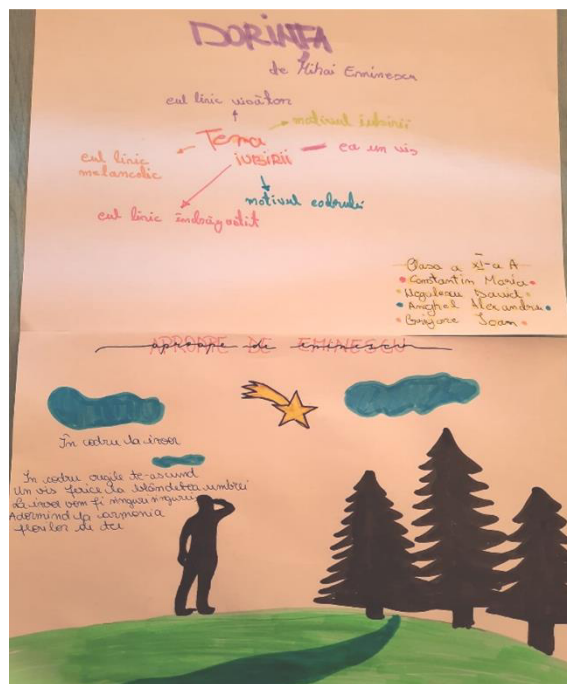 DORINȚA
de Mihai Eminescu
eul liric visător
motivul iubirii
Tema
iubirii
ca un vis
eul liric
melancolic
motivul codrului
eul liric îndrăgostit
Clasa a XI-a A
Constantin Maria
David
Anghel Alexandru
Ioan
APROAPE DE EMINESCU
aproape de eminescu
În codru la izvor
În codru crăgile te-ascund
Un vis ferice la blândețea umbrei
La izvor vom fi singuri singurei
Adormind la armonia
florilor de tei